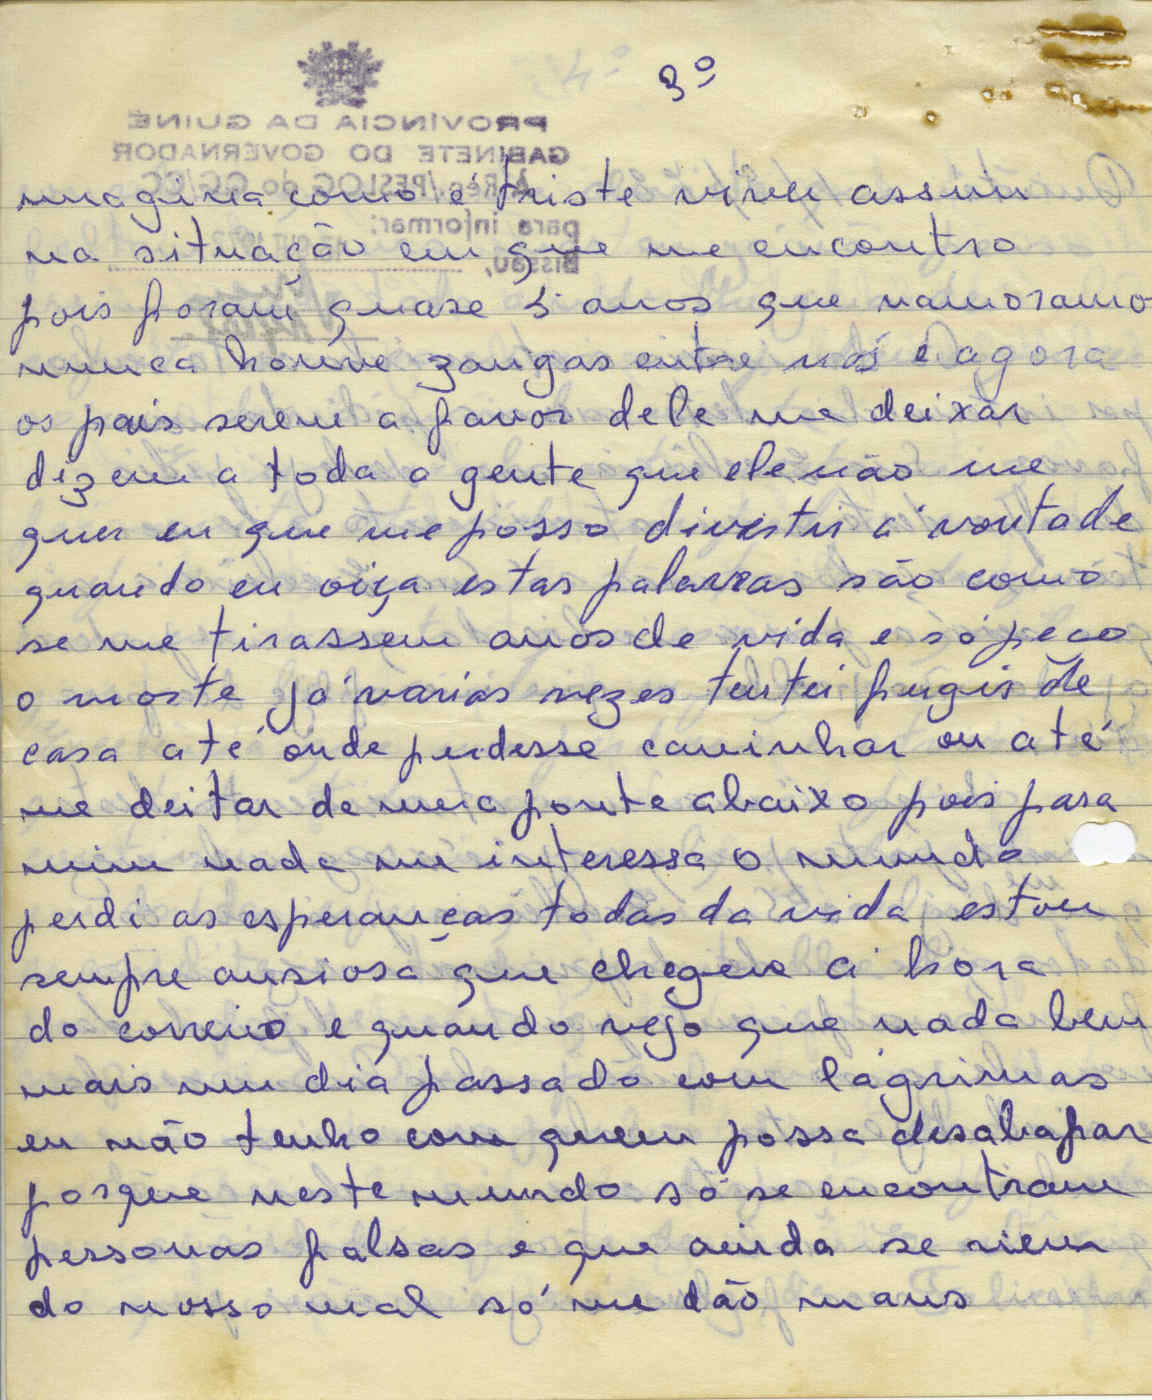 3º
PROVÍNCIA DA GUINÉ
GABINETE DO GOVERNADOR
À Rep/PESLOG do QG/CC
para informar.
Bissau,
imagina como e triste viver assim
na situação em que me encontro
pois foram quase 5 anos que namoramo
nunca houve zangas entre nós e agora
os pais serem a favor dele me deixar
dizem a toda a gente que ele não me
quer eu que me posso divirtir á vontade
quando eu oiça estas palavras são como
se me tirassem anos de vida e só peco
a morte já varias vezes tentei fugir de
casa até onde pudesse caminhar ou até
me deitar de uma ponte abaixo pois para
mim nada me interessa o mundo
perdi as esperanças todas da vida estou
sempre ansiosa que chegue a hora
do correio e quando vejo que nada bem
mais um dia passado com lágrimas
eu não tenho com quem possa desabafar
porque neste mundo só se encontram
pessoas falsas e que ainda se riem
do nosso mal só me dão maus